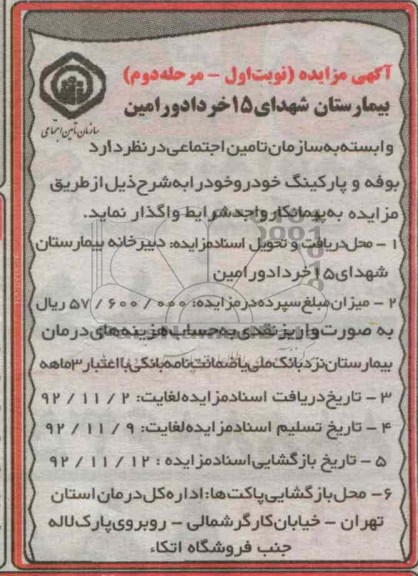 آگهی مزایده (نوبت اول - مرحله دوم)
بیمارستان شهدای ۱۵ خرداد ورامین
سازمان تامین اجتماعی
وابسته به سازمان تامین اجتماعی در نظر دارد
بوفه و پارکینگ خودرو خود را به شرح ذیل از طریق
مزایده به پیمانکار واجد شرایط واگذار نماید.
۱ - محل دریافت و تحویل اسناد مزایده: دبیرخانه بیمارستان
شهدای ۱۵ خرداد ورامین
۲ - میزان مبلغ سپرده در مزایده: ۵۷/۶۰۰/۰۰۰ ریال
به صورت واریز نقدی به حساب هزینه های درمان
بیمارستان نزد بانک ملی یا ضمانت نامه بانکی با اعتبار ۳ ماهه
۳ - تاریخ دریافت اسناد مزایده لغایت: ۹۲/۱۱/۲
۴ - تاریخ تسلیم اسناد مزایده لغایت: ۹۲/۱۱/۹
۵ - تاریخ بازگشایی اسناد مزایده: ۹۲/۱۱/۱۲
۶ - محل بازگشایی پاکت ها: اداره کل درمان استان
تهران - خیابان کارگر شمالی - روبروی پارک لاله
جنب فروشگاه اتکاء